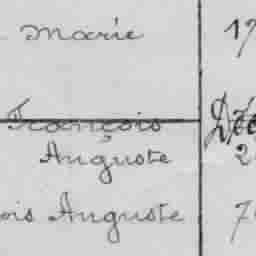 Marie 19
François
Auguste 2
ois Auguste 7